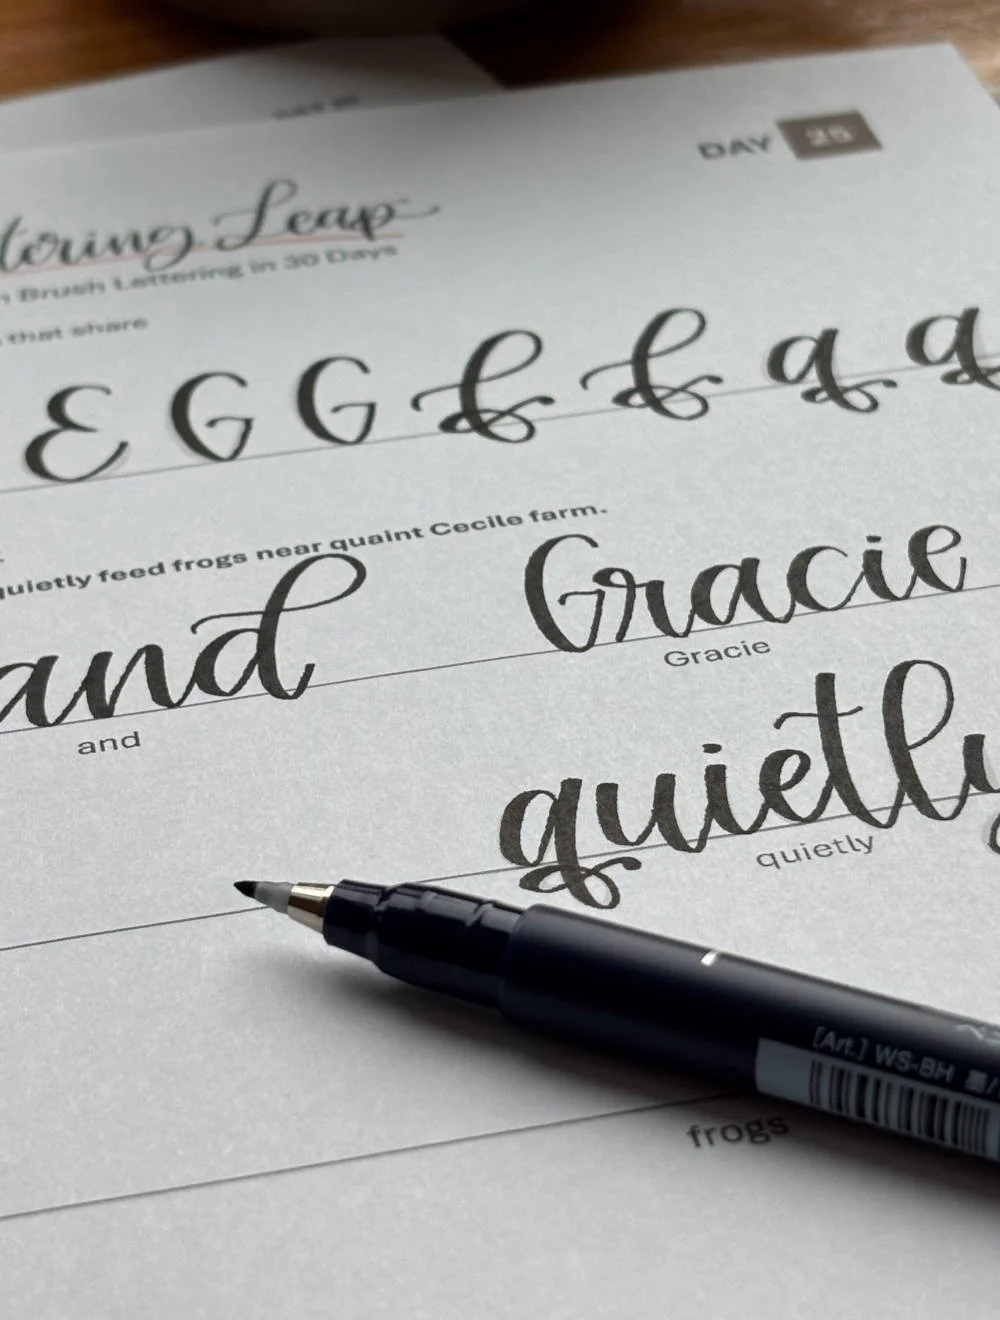 DAY 25
tering Leap
Brush Lettering in 30 Days
that share
E G G f f q q
quietly feed frogs near quaint Cecile farm.
and Gracie
and Gracie
quietly
quietly
[Art.] WS-BH
frogs